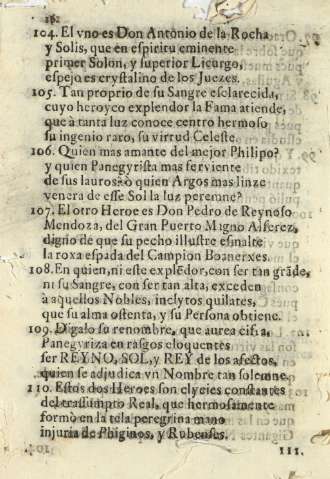 104. El vno es Don Antonio de la Rocha
y Solis, que en espiritu eminente
primer Solon, y superior Licurgo,
espejo es crystalino de los Juezes.
105. Tan proprio de su Sangre esclarecida,
cuyo heroyco explendor la Fama atiende,
que à tanta luz conoce centro hermoso
su ingenio raro, su virrud Celeste.
106. Quien mas amante del mejor Philipo?
y quien Panegyrista mas serviente
de sus lauros? o quien Argos mas linze
venera de esse Sol la luz peremne?
107. El otro Heroe es Don Pedro de Reynoso
Mendoza, del Gran Puerto Migno Alferez,
digno de que su pecho illustre esmalte
la roxa espada del Campion Boanerxes.
108. En quien, ni este explēdor, con ser tan grāde,
ni su Sangre, con ser tan alta, exceden
à aquellos Nobles, inclytos quilates,
que su alma ostenta, y su Persona obtiene.
109. Digalo su renombre, que aurea cifra,
Panegyriza en rasgos eloquentes
ser REYNO, SOL, y REY de los afectos,
quien se adjudica vn Nombre tan solemne.
110. Estos dos Heroes son clycies constantes
del trassumpto Real, que hermosamente
formò en la tela peregrina mano
injuria de Phiginos, y Rubenses.
111.